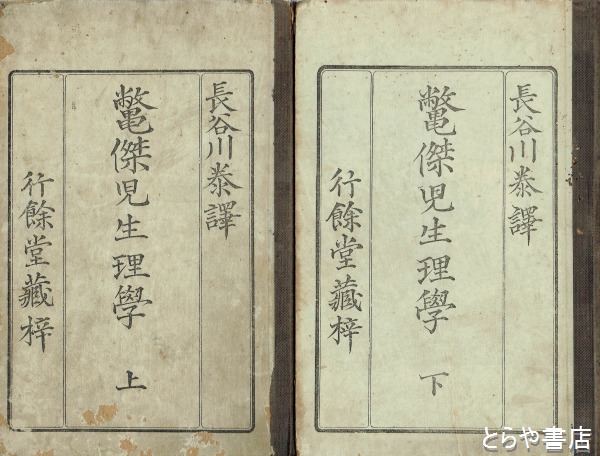 長谷川泰譯
鼈傑児生理學
上
行餘堂藏梓
長谷川泰譯
鼈傑児生理學
下
行餘堂藏梓
とらや書店